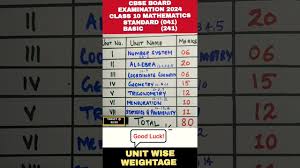 CBSE BOARD
EXAMINATION 2024
CLASS 10 MATHEMATICS
STANDARD (041)
BASIC (241)
UNIT NO. UNIT NAME MARKS
I NUMBER SYSTEM 06
II ALGEBRA 20
III COORDINATE GEOMETRY 06
IV GEOMETRY 15
V TRIGONOMETRY 12
VI MENSURATION 10
VII STATISTICS & PROBABILITY 11
TOTAL 80
Good Luck!
UNIT WISE
WEIGHTAGE